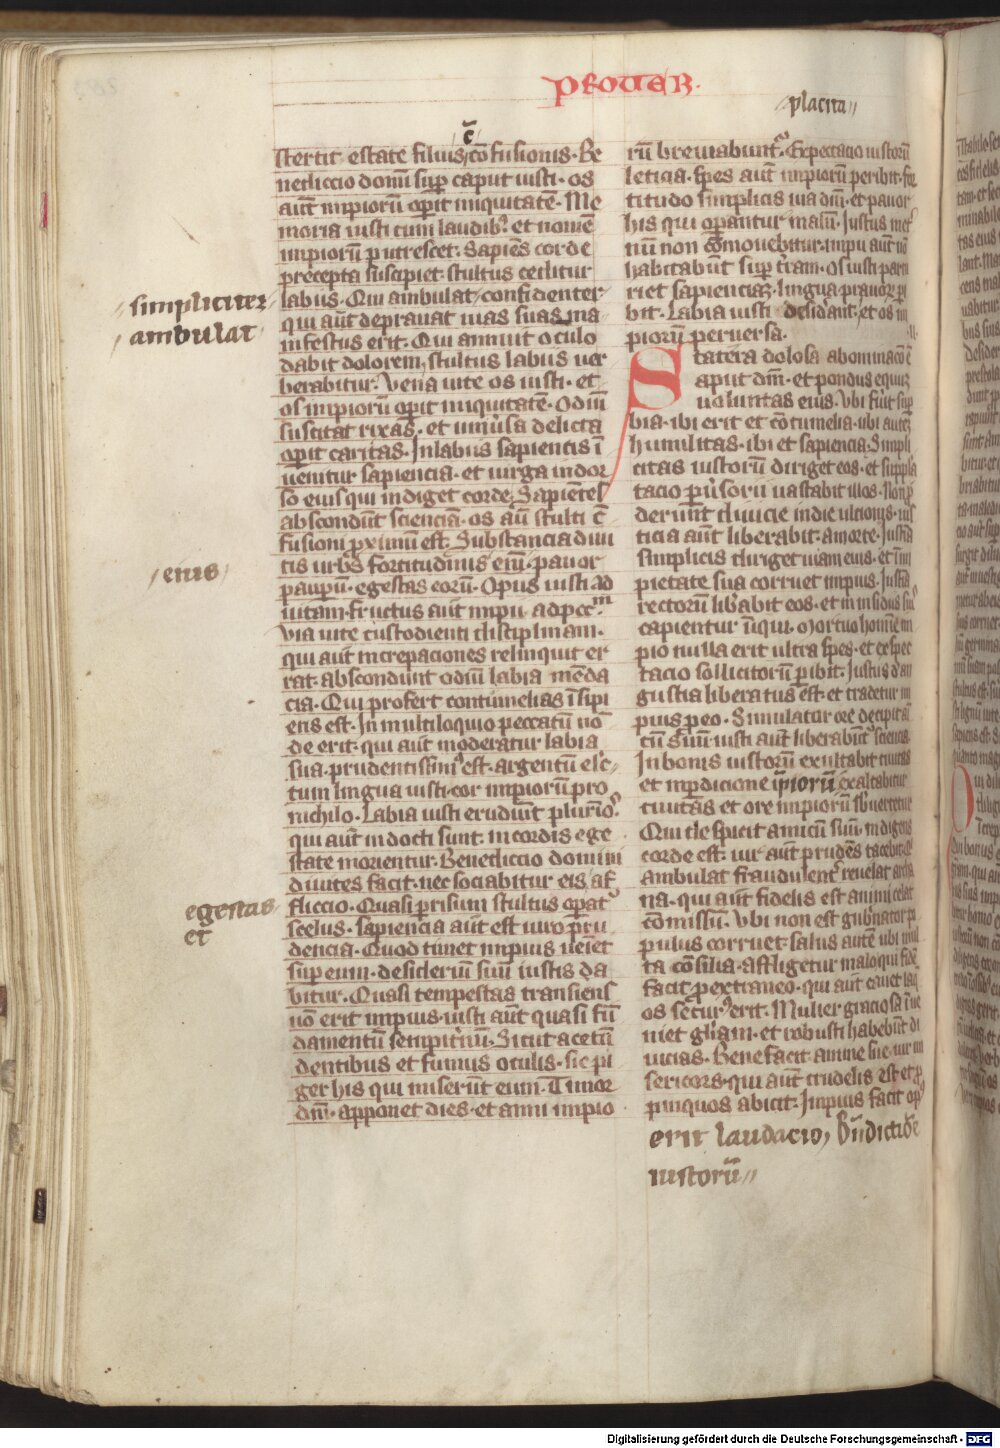 Prouer.
placita
c̄
stertit estate filius, cōfusionis. Be
nediccio domī sup caput iusti. os
aūt impiorū opit iniquitatē. Me
moria iusti cum laudibꝰ. et nomē
impiorū putrescet. Sapiēs corde
precepta suscipiet. stultus ceditur
labiis. Qui ambulat confidenter
simpliciter
ambulat
qui aūt deprauat uias suas ma
nifestus erit. Qui annuit oculo
dabit dolorem, stultus labiis uer
berabitur. Vena uite os iusti. et
os impiorū opit iniquitatē. Odiū
suscitat rixas. et uniūsa delicta
opit caritas. In labiis sapientis ī
uenitur sapiencia. et uirga in dor
so eius qui indiget corde. Sapiētes
abscondūt sciencia. os aū stulti c̄
fusioni pximum est. Substancia diui
tis urbs fortitudinis eiꝰ. pauor
enis
paupū. egestas eorū. Opus iusti ad
uitam. fructus aūt impii ad pccm
Via uite custodienti disciplinam.
qui aūt increpaciones relinquit er
rat. abscondunt odiū labia mēda
cia. Qui profert contumelias īsipi
ens est. In multiloquio peccatū nō
de erit. qui aūt moderatur labia
sua. prudentissimꝰ est. argentū elc̄
tum lingua iusti. cor impiorū pro
nichilo. Labia iusti erudiūt plurīoꝰ.
qui aūt in docti sunt. in cordis ege
state morientur. Benediccio domini
diuites facit. nec sociabitur eis af
fliccio. Quasi p risum stultus opatꝰ
egestas
et
scelus. sapiencia aūt est uiro pru
dencia. Quod timet impius ueīet
sup eum. desideriū suū iustis da
bitur. Quasi tempestas transiens
nō erit impius. iusti aūt quasi fū
damentū sempitnū. Sicut acetū
dentibus et fumus oculis. sic pi
ger his qui miserūt eum. Timor
dnī. apponet dies. et anni impio
rū breuiabuntꝰ. Expectacio iustorū
leticia. spes aūt impiorū peribit. for
titudo simplicis uia dnī. et pauor
his qui opantur malū. Justus inet
nū non cōmouebitur. impii aūt nō
habitabūt sup trām. Os iusti partu
riet sapienciā. lingua prauoꝝ pi
bit. Labia iusti desidāut. et os im
piorū peruersa.
Statera dolosa abominacō ē
aput dm̄. et pondus equū
uoluntas eius. Vbi fuīt sup
bia. ibi erit et cōtumelia. ubi autē
humilitas. ibi et sapiencia. Simpli
citas iustorū diriget eos. et suppla
tacio puisorū uastabit illos. Non p
derunt diuicie in die ulcionis. ius
ticia aūt liberabit. a morte. Justicia
simplicis diriget uiam eius. et ī im
pietate sua corruet impius. Justicia
rectorū libabit eos. et in insidiis suis
capientur īiqui. Mortuo homīe im
pio nulla erit ultra spes. et expec
tacio sollicitorū pibit. Justus d'an
gustia liberatus est. et tradetur im
pius p eo. Simulator ore decipit am
cū suū. iusti aūt liberabūt sciencia.
In bonis iustorū exultabit ciuitas
et in pdicione īpiorū exaltabitur
ciuitas et ore impiorū subuertetur
Qui despicit amicū suū. indigens
corde est. uir aūt prudēs tacebit. Qi
ambulat fraudulentꝰ. reuelat archa
na. qui aūt fidelis est animi celat
cōmissū. Vbi non est gubnator po
pulus corruet. salus autē ubi mul
ta cōsilia. Affligetur malo qui fidē
facit p extraneo. qui aūt cauet laq
os securꝰ erit. Mulier graciosa īue
niet gliam. et robusti habebūt di
uicias. Benefacit anime sue. uir mi
sericors. qui aūt crudelis est et p
pinquos abicit. Impius facit opꝰ
erit laudacio, bn̄dictiōe
iustorū
Digitalisierung gefördert durch die Deutsche Forschungsgemeinschaft - DFG